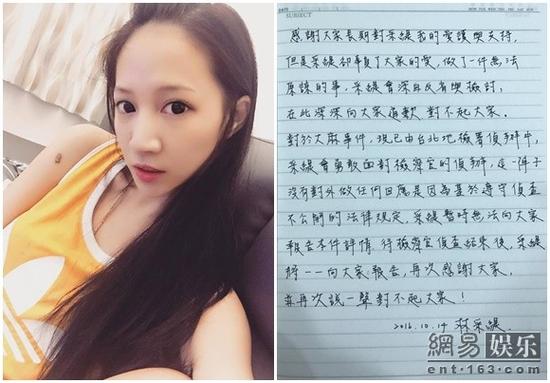 SUBJECT
感謝大家長期對采緹我的愛護與支持,
但是采緹卻辜負了大家的愛,做了一件無法
原諒的事,采緹會深自反省與檢討,
在此深深向大家道歉 對不起大家。
對於大麻事件,現已由台北地檢署偵辦中,
采緹會勇敢面對檢察官的偵辦,這一陣子
沒有對外做任何回應是因為基於遵守偵查
不公開的法律規定,采緹暫時無法向大家
報告本件詳情,待檢察官偵查結束後,采緹
將一一向大家報告,再次感謝大家,
並再次說一聲對不起大家!
2016.10.14 采緹
網易 娱乐
ent.163.com